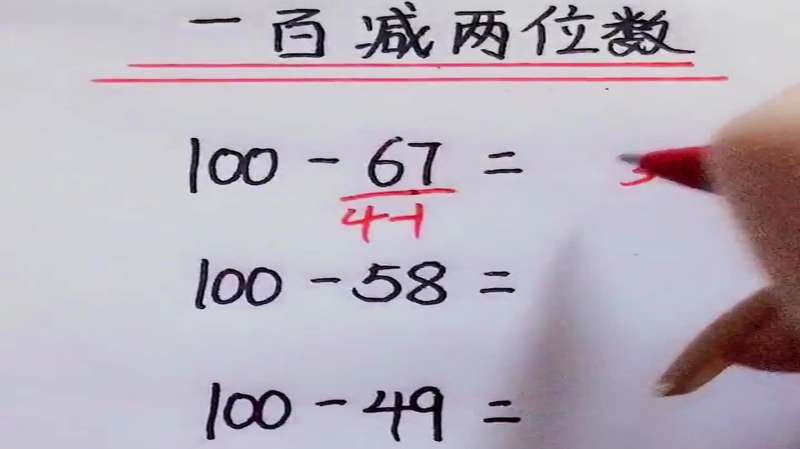 一百减两位数
100 - 67 =
4-1
100 - 58 =
100 - 49 =